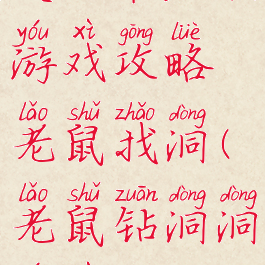 yóu xì gōng lüè
游戏攻略
lǎo shǔ zhǎo dòng
老鼠找洞(
lǎo shǔ zuān dòng dòng
老鼠钻洞洞